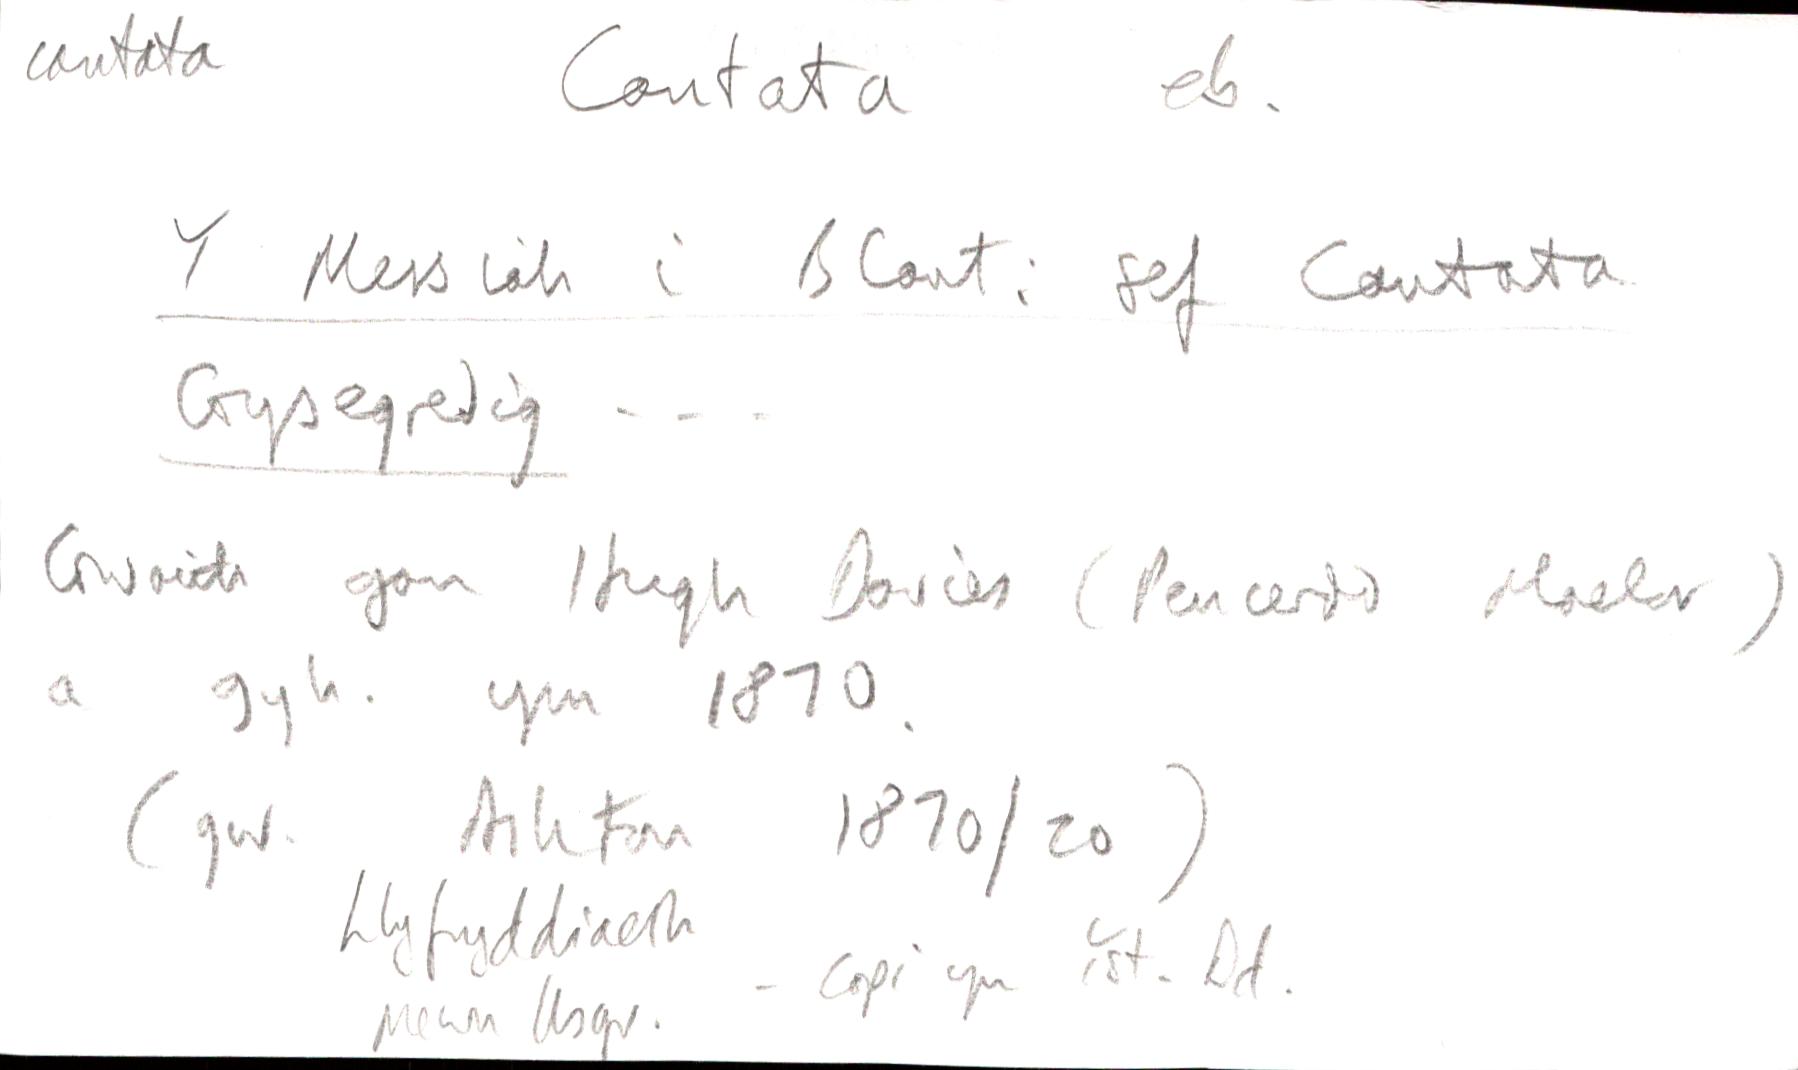 cantata Cantata eb.
Y Messiah i BLant: sef Cantata
Gysegredig ----
Gwaith gan Hugh Davies (Pencerdd Maelor)
a gyh. ym 1870.
(gw. Ashton 1870/20)
Llyfryddiaeth
mewn llsgr. - copi yn Ist. Dd.